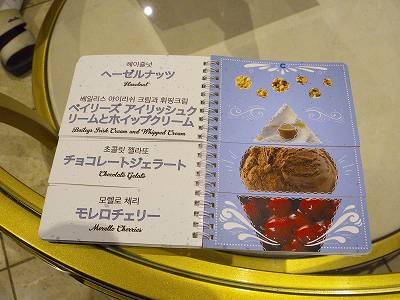 헤이즐넛
ヘーゼルナッツ
Hazelnut
베일리스 아이리쉬 크림과 휘핑크림
ベイリーズ アイリッシュク
リームとホイップクリーム
Baileys Irish Cream and Whipped Cream
초콜릿 젤라또
チョコレートジェラート
Chocolate Gelato
모렐로 체리
モレロチェリー
Morello Cherries
C